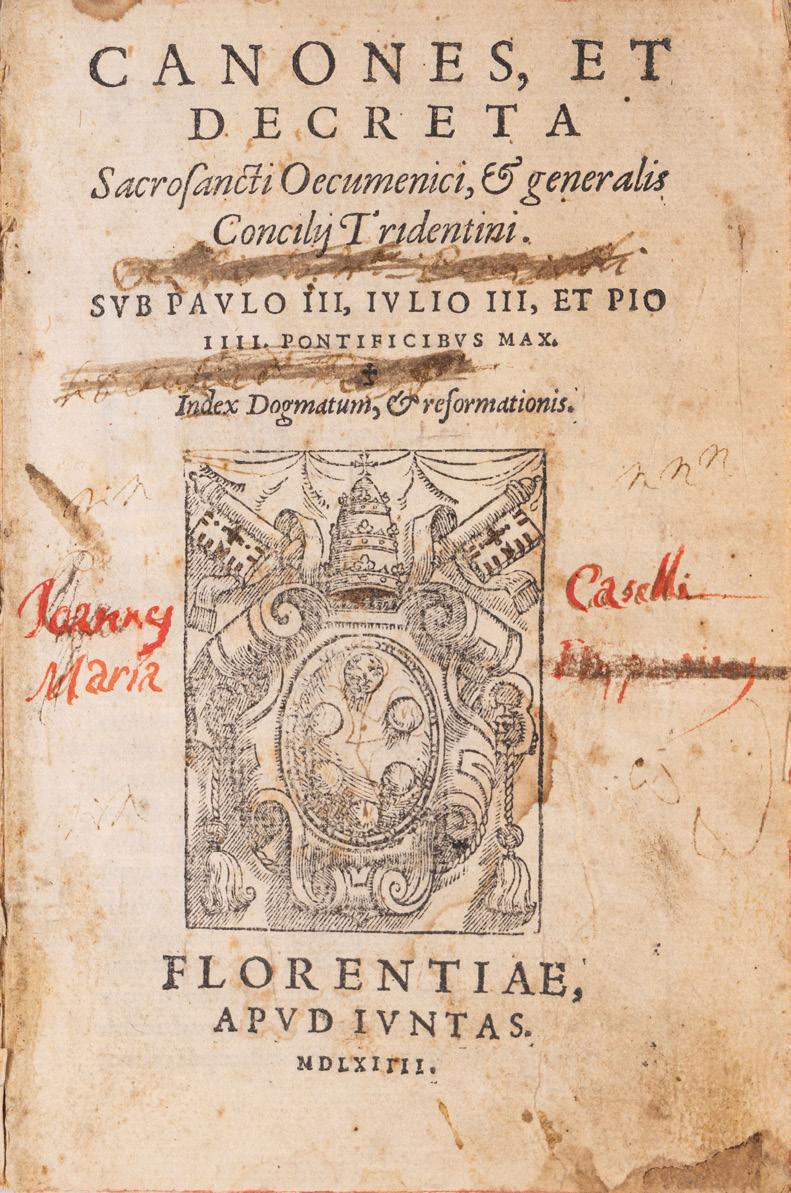 CANONES, ET
DECRETA
Sacroſancti Oecumenici, & generalis
Concilij Tridentini.
SVB PAVLO III, IVLIO III, ET PIO
IIII. PONTIFICIBVS MAX.
Index Dogmatum, & reformationis.
Joannes
Maria
Caselli
FLORENTIAE,
APVD IVNTAS.
MDLXIIII.